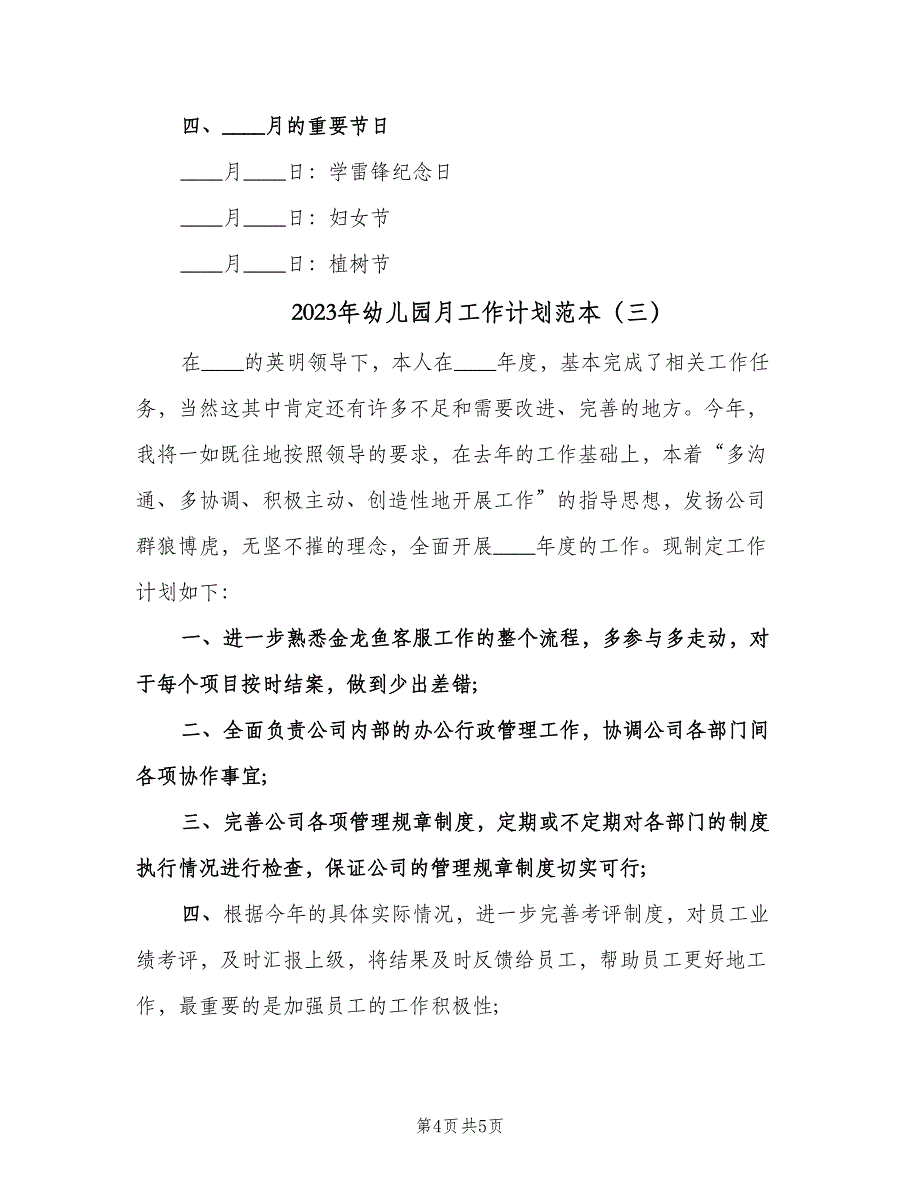 四、____月的重要节日
____月____日：学雷锋纪念日
____月____日：妇女节
____月____日：植树节
2023年幼儿园月工作计划范本（三）
在____的英明领导下，本人在____年度，基本完成了相关工作任
务，当然这其中肯定还有许多不足和需要改进、完善的地方。今年，
我将一如既往地按照领导的要求，在去年的工作基础上，本着“多沟
通、多协调、积极主动、创造性地开展工作”的指导思想，发扬公司
群狼博虎，无坚不摧的理念，全面开展____年度的工作。现制定工作
计划如下：
一、进一步熟悉金龙鱼客服工作的整个流程，多参与多走动，对
于每个项目按时结案，做到少出差错;
二、全面负责公司内部的办公行政管理工作，协调公司各部门间
各项协作事宜;
三、完善公司各项管理规章制度，定期或不定期对各部门的制度
执行情况进行检查，保证公司的管理规章制度切实可行;
四、根据今年的具体实际情况，进一步完善考评制度，对员工业
绩考评，及时汇报上级，将结果及时反馈给员工，帮助员工更好地工
作，最重要的是加强员工的工作积极性;
第4页共5页